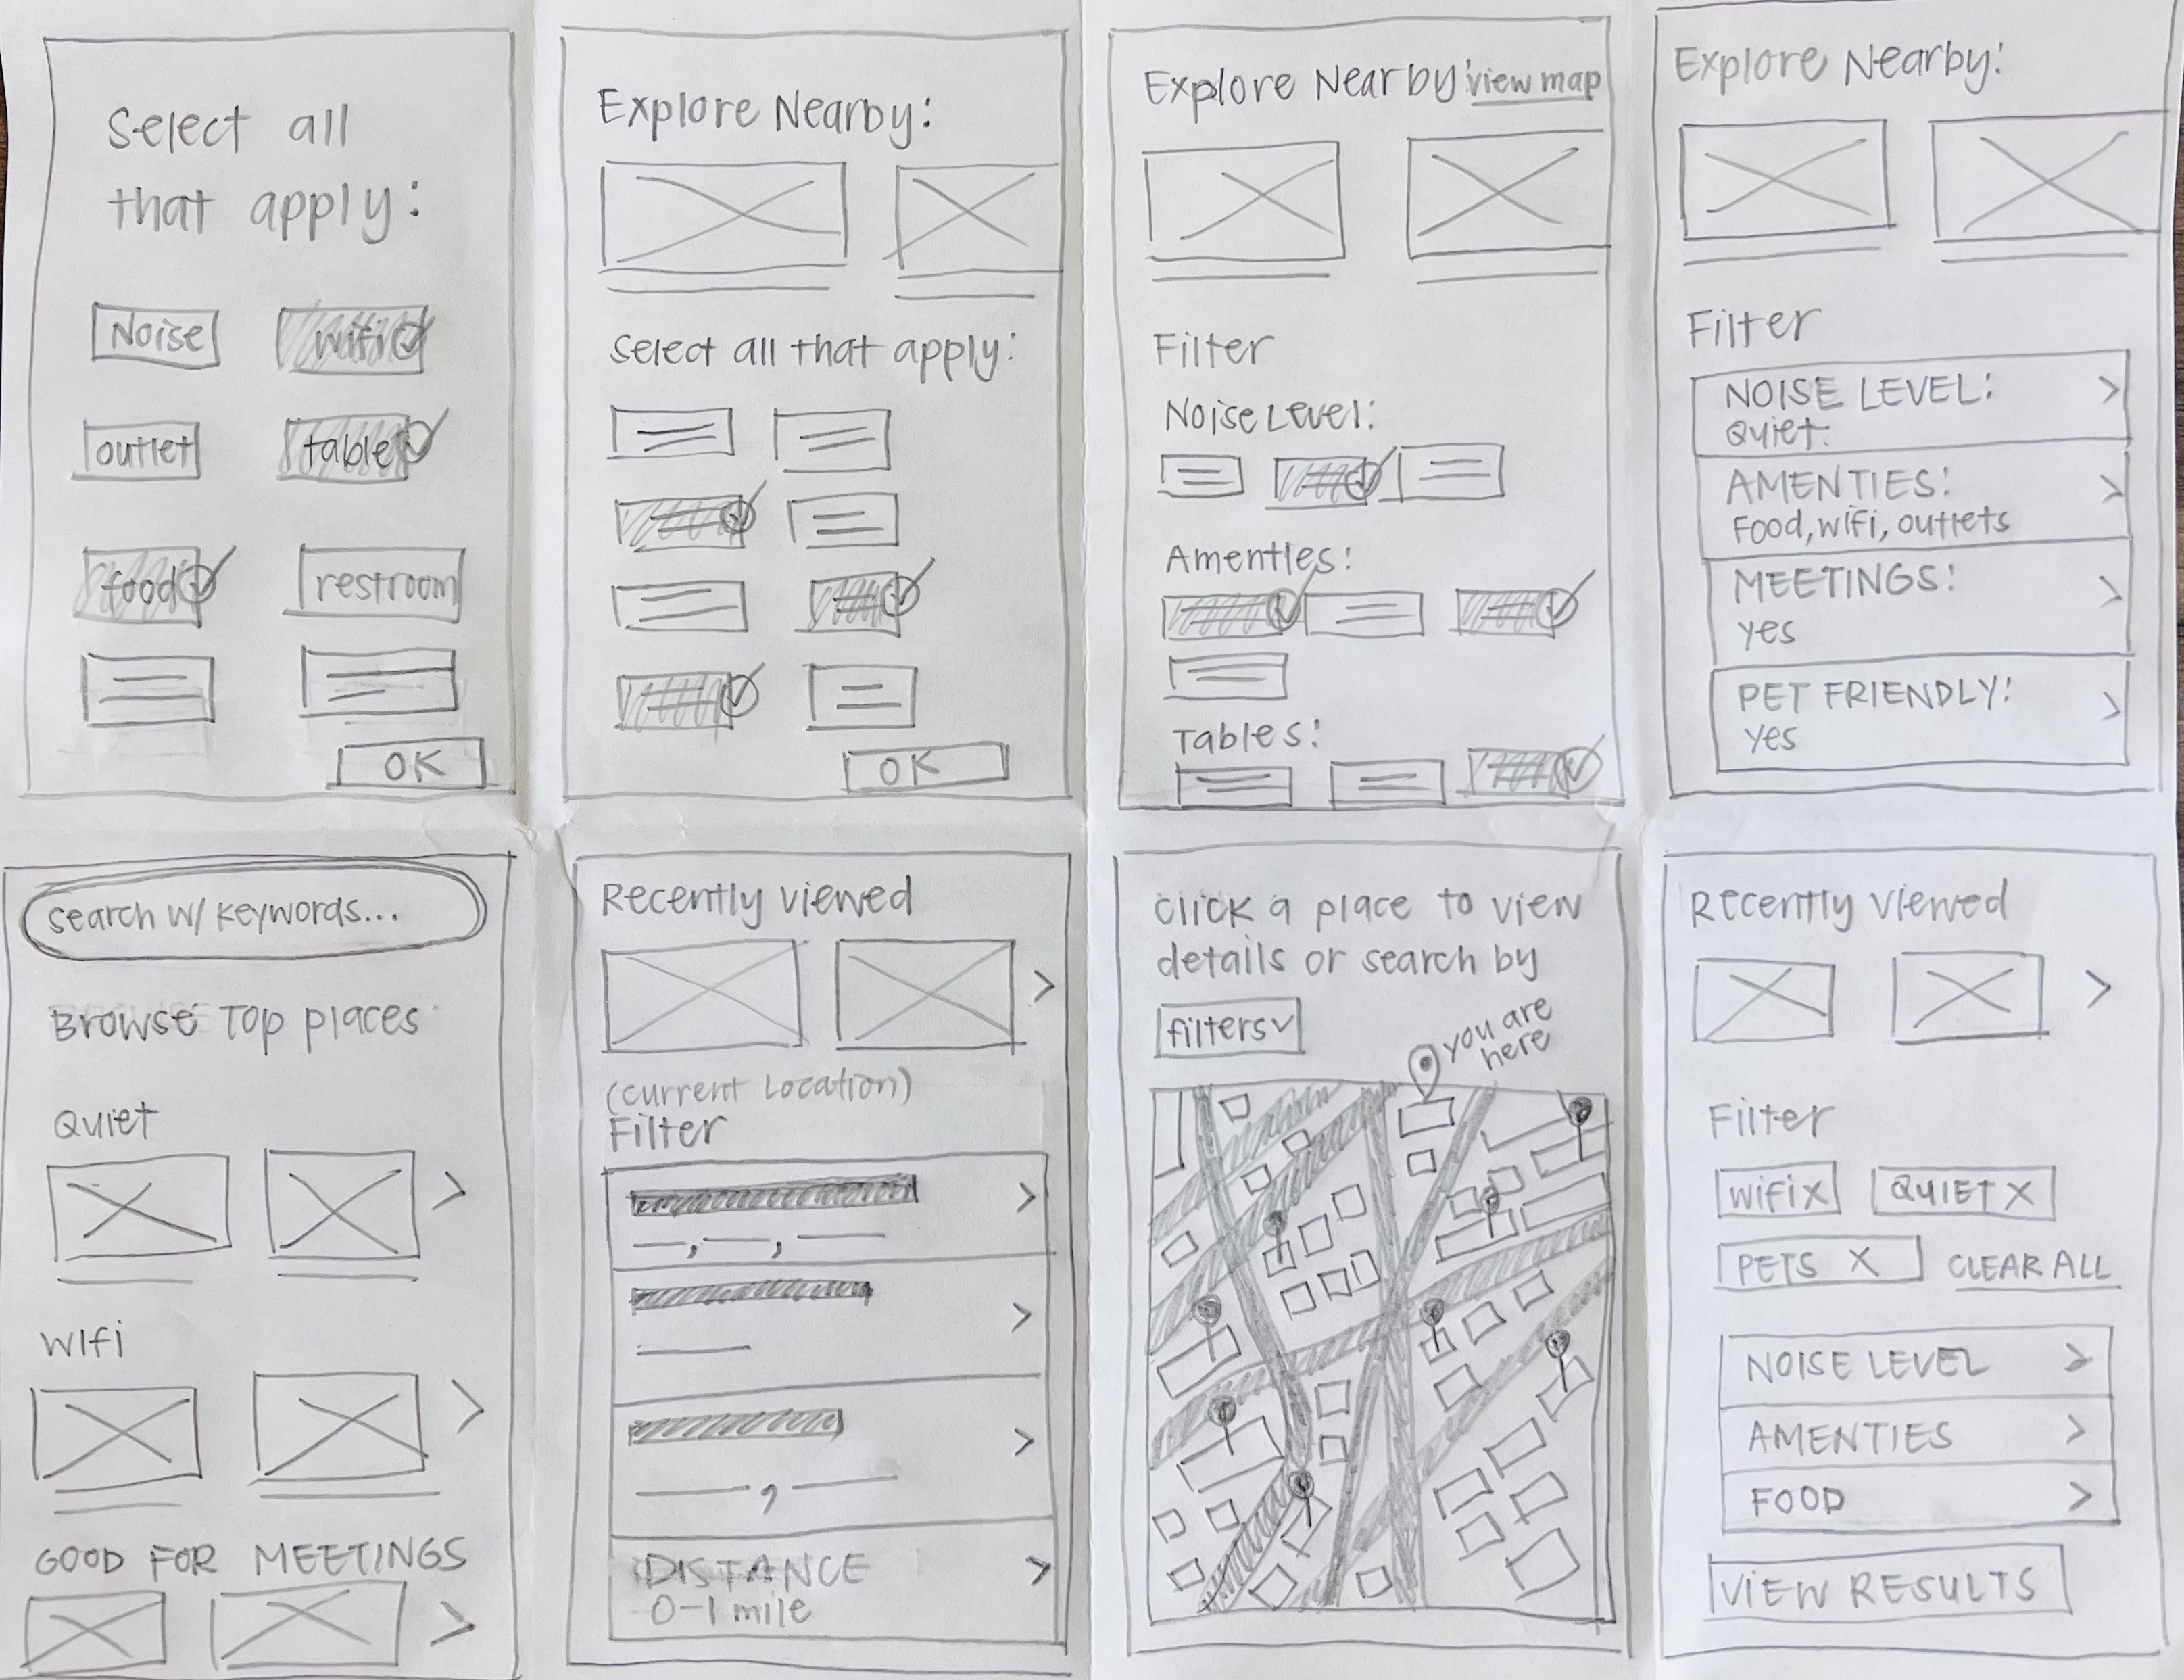 Select all
that apply:
Noise
wifi
outlet
table
food
restroom
OK
Explore Nearby:
Select all that apply:
OK
Explore Nearby:
view map
Filter
Noise Level:
Amenties:
Tables:
Explore Nearby:
Filter
NOISE LEVEL:
Quiet
AMENTIES:
Food, wifi, outlets
MEETINGS:
yes
PET FRIENDLY:
yes
search w/ keywords...
Browse Top places
Quiet
Wifi
GOOD FOR MEETINGS
Recently viewed
(current Location)
Filter
DISTANCE
0-1 mile
click a place to view
details or search by
filters
you are
here
Recently viewed
Filter
wifi x
QUIET X
PETS X
CLEAR ALL
NOISE LEVEL
AMENTIES
FOOD
VIEW RESULTS